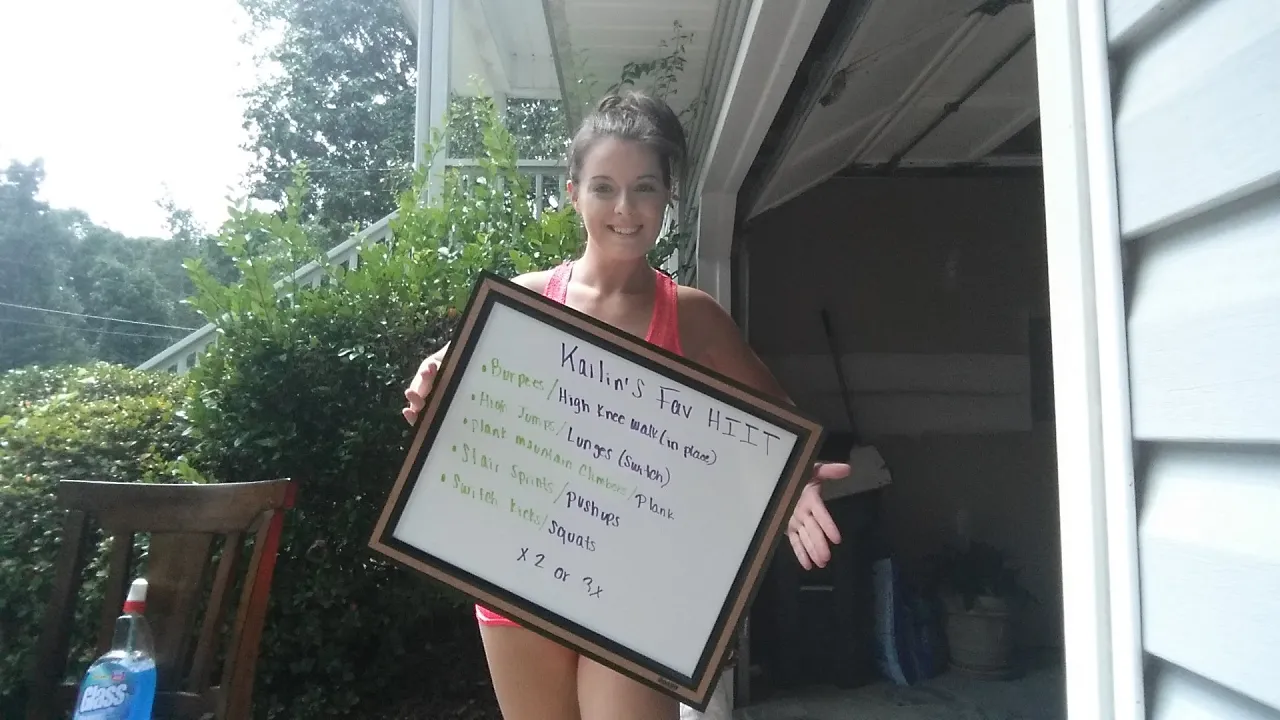 Kailin's Fav HIIT
• Burpees/High Knee walk (in place)
• High Jumps/Lunges (switch)
• Plank mountain Climbers/Plank
• Stair Sprints/pushups
• Switch Kicks/squats
x 2 or 3x
Glass